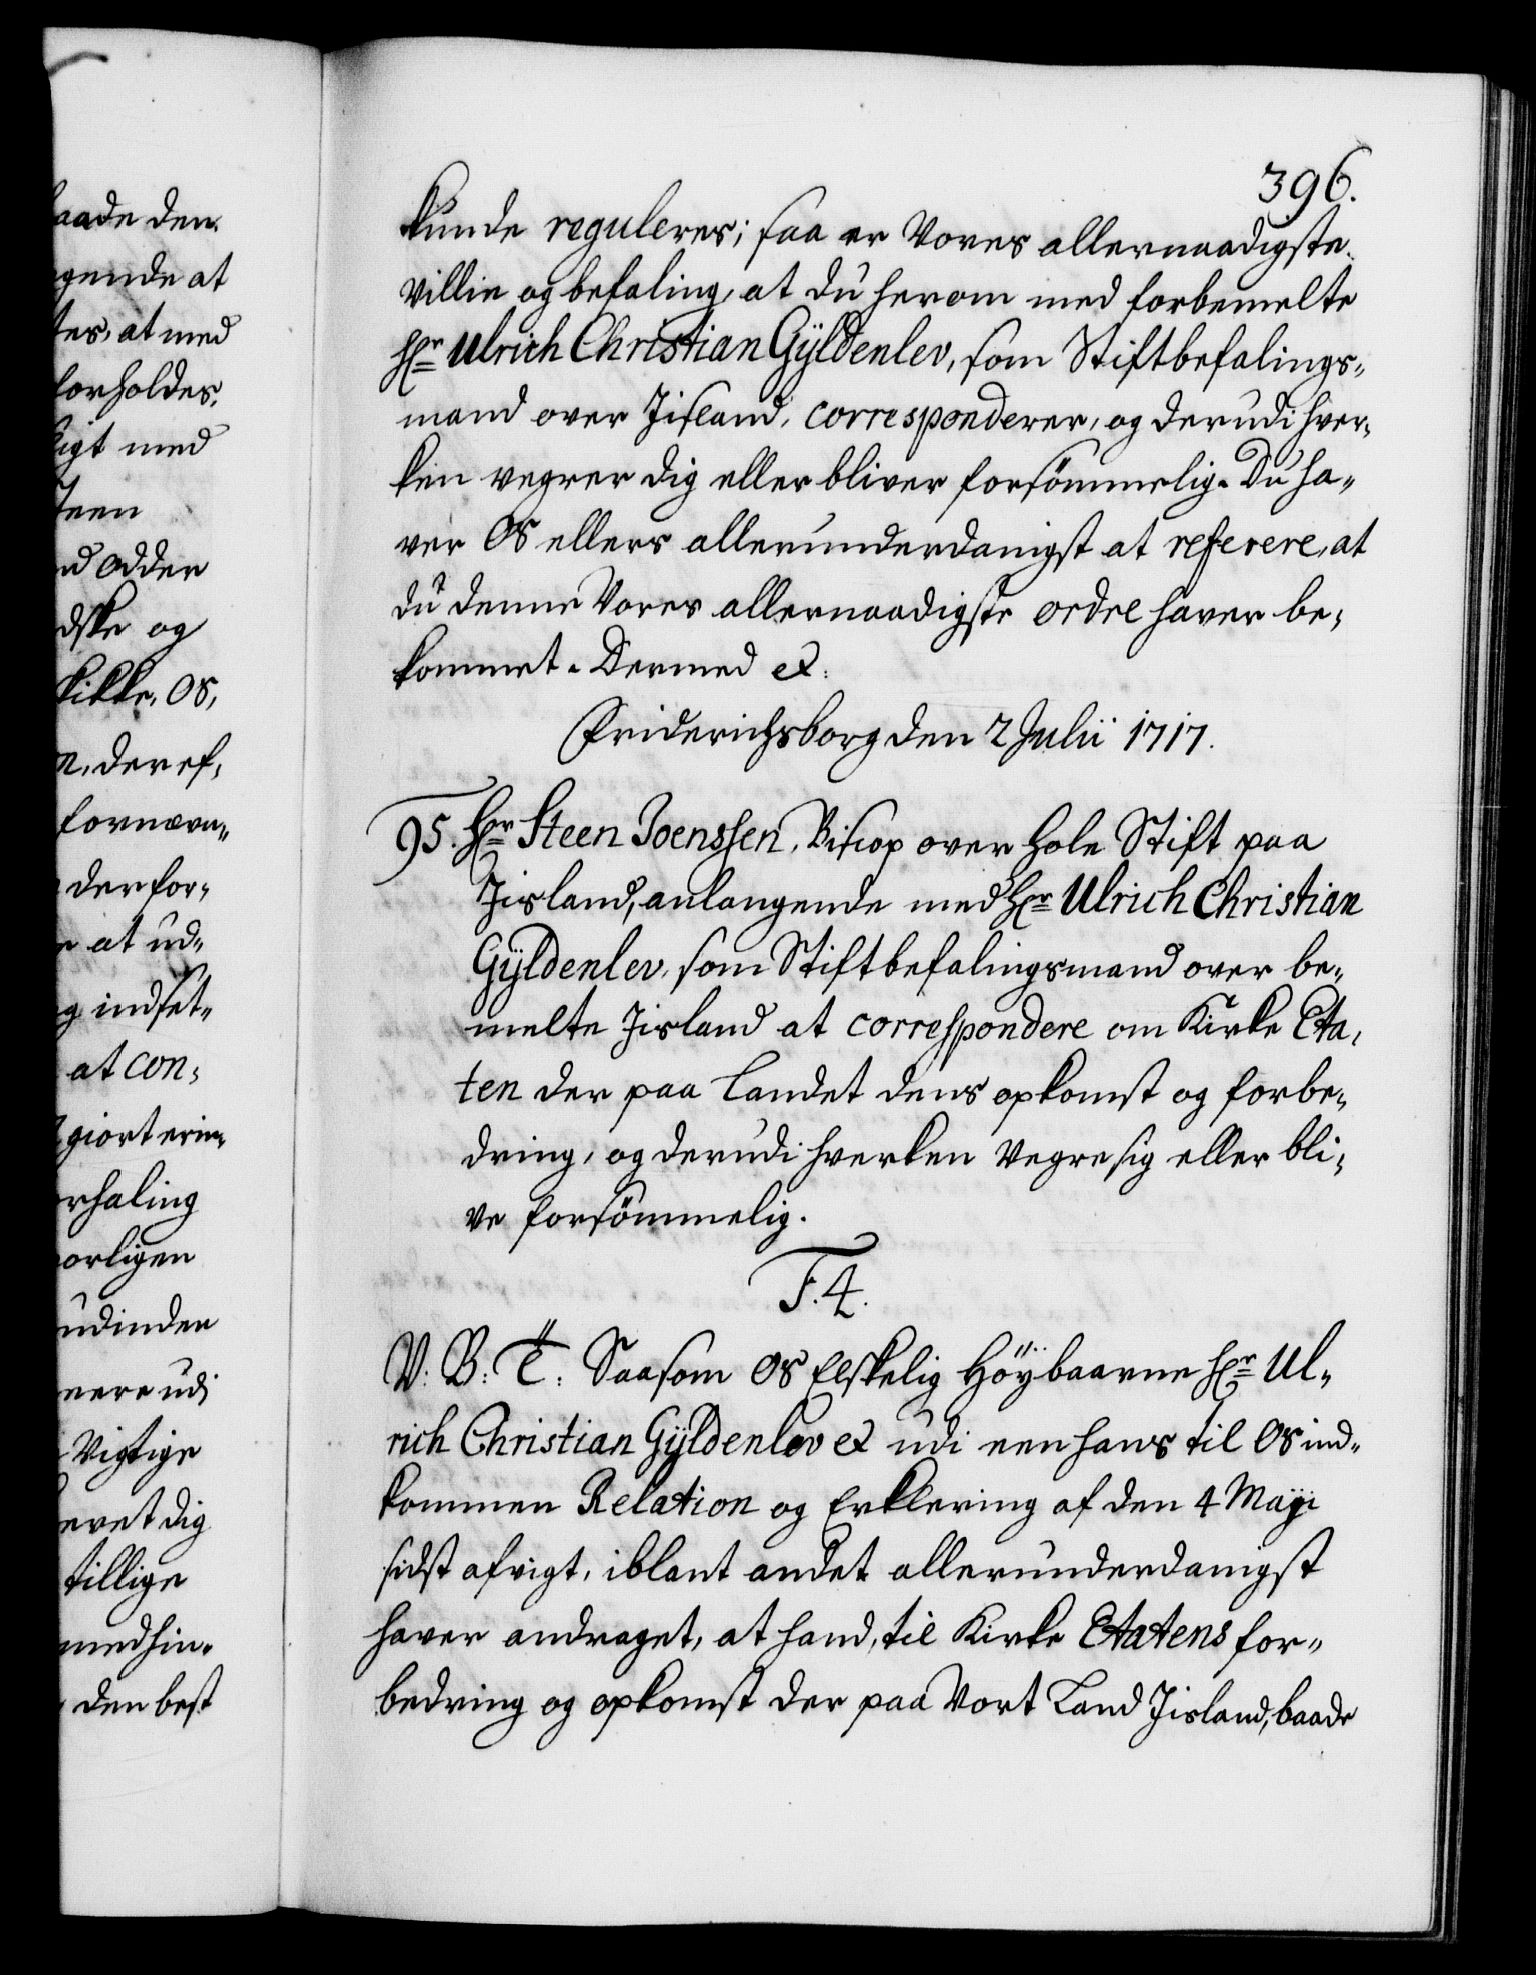 396.
kunde reguleres; saa er Vores allernaadigste
Villie og befaling, at du herom med forbemelte
Hr Ulrich Christian Gÿldenlev, som Stiftbefalings-
mand over Jisland, corresponderer, og derudi hver-
ken vegrer dig eller bliver forsömmelig. Du ha-
ver Os ellers allerunderdanigst at referere, at
du denne Vores allernaadigste ordre haver be-
kommet. Dermed &.
Friderichsborg den 2 Julii 1717.
95. Hr Steen Joenssen, Biscop over Hole Stift paa
Jisland, anlangende med Hr Ulrich Christian
Gÿldenlev, som Stiftbefalingsmand over be-
melte Jisland at correspondere om Kirke Eta-
ten der paa Landet dens opkomst og forbe-
dring, og derudi hverken vegre sig eller bli-
ve forsömmelig.
F. 4.
V: B: T: Saasom Os Elskelig Höÿbaarne Hr Ul-
rich Christian Gÿldenlev & udi een hans til Os ind-
kommen Relation og Erklering af den 4 Maÿi
sidst afvigt, iblant andet allerunderdanigst
haver andraget, at hand, til Kirke Etatens for-
bedring og opkomst der paa Vort Land Jisland, baade
aade den
gende at
tes, at med
forholdes,
ligt med
teen
d Odder
dske og
kikke, Os,
n, der ef-
fornævn-
der for-
at ud-
g indset-
at con-
giort erin-
rhaling
orligen
udinden
nere udi
Vigtige
evet dig
tillige
med hin-
den best